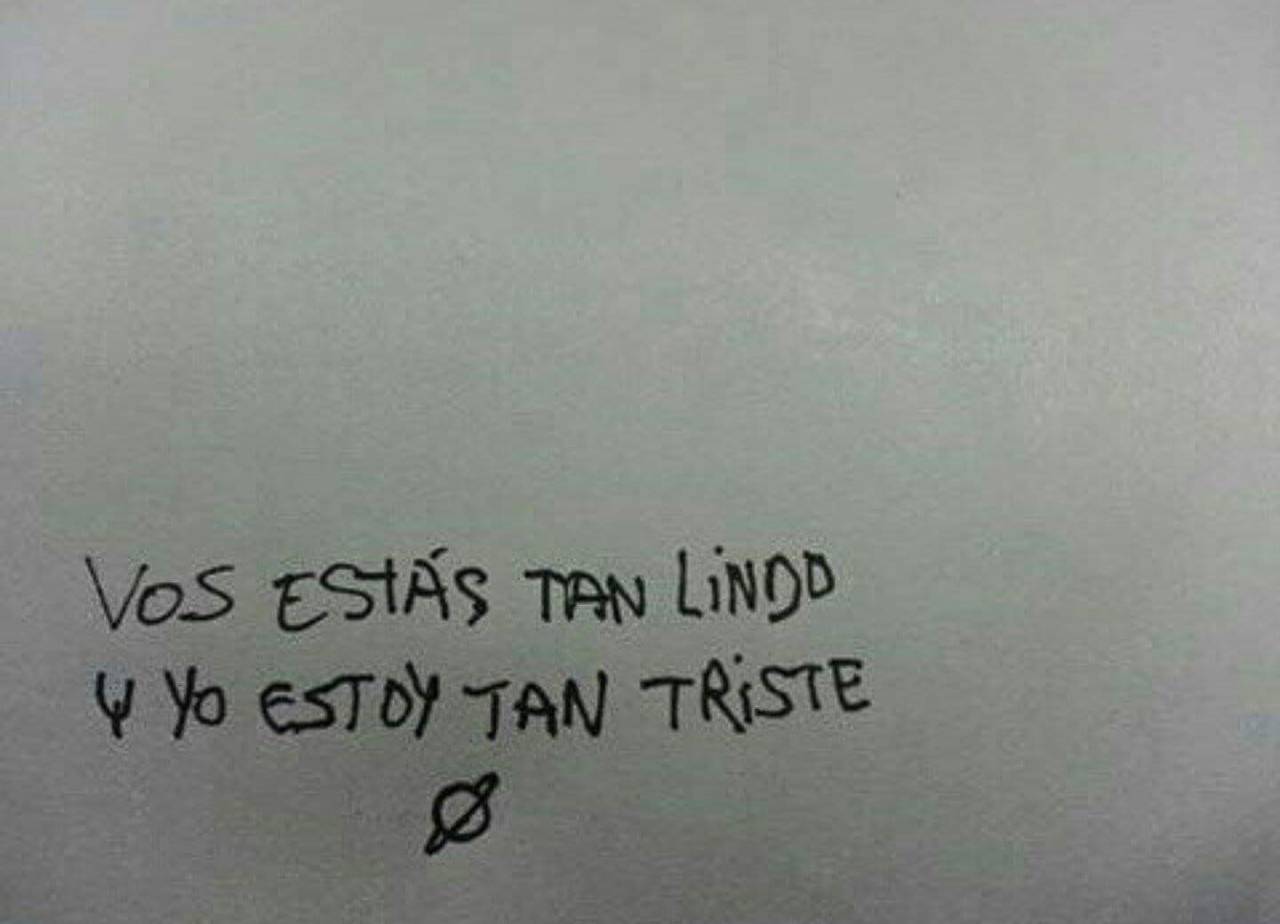 VOS ESTÁS TAN LiNDO
Y YO ESTOY TAN TRiSTE
Ø